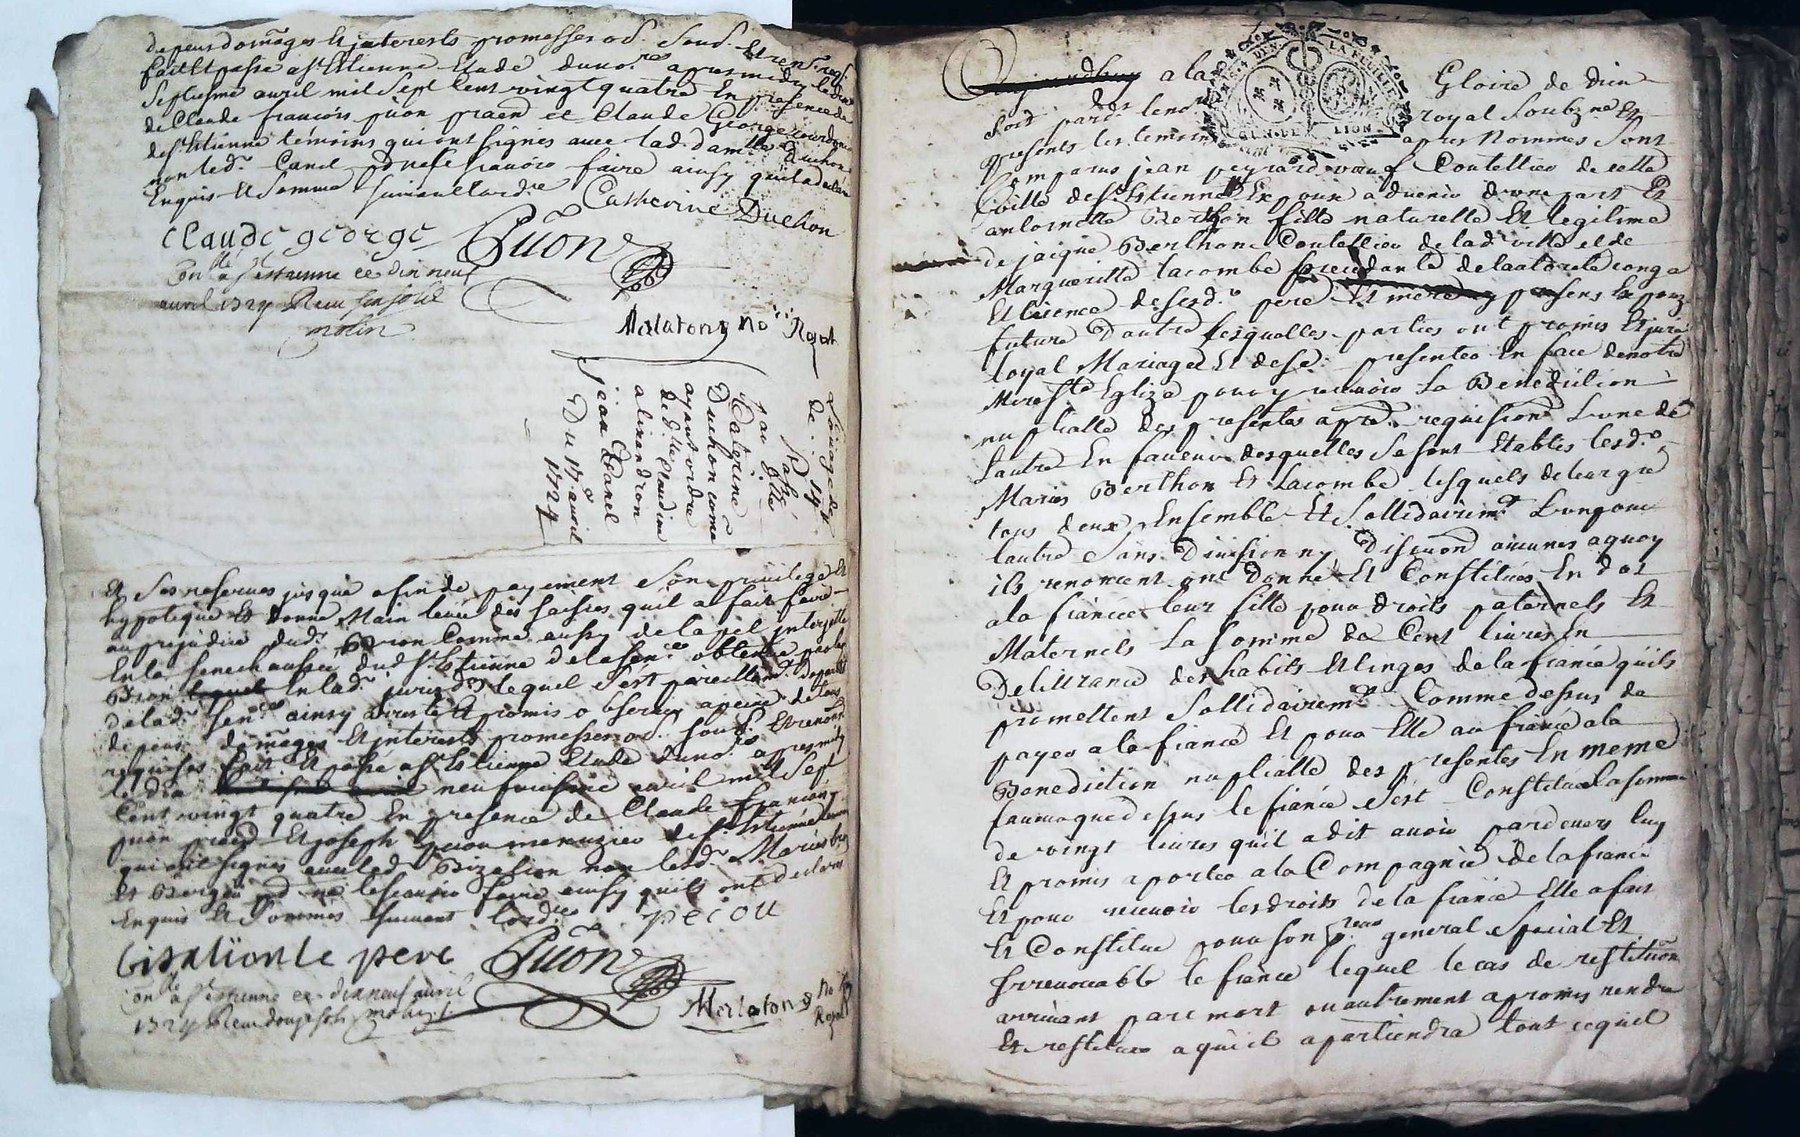 depens domages et interests promesses ob. soub. et ren. req.
fait et passe a st Estienne Etude du nore apres midy le dix
septiesme avril mil sept cent vingt quatre En presence de
de Claude françois puon praen et Claude George
de st Estienne témoins qui ont signés avec lad. damlle Duchon
non led. Canel pour ne scavoir faire ainsy quil a declare
Enquis et sommé suivant lordre
Catherine Duchon
Claude george
Puon
Con.lé a st estienne ce dix neuf
avril 1724 Receu six sols
molin
Malatony no.re Royal
de
par
Catherine
Duchon come
ayant ordre
de dlle Claudine
alixandron
a
jean Canel
Du 17 avril
1724
Et ses reserves jusque a fin de payement son privilege et
hypoteque et donne Main levée des saisies quil a fait faire
au prejudice dud. Brion Comme aussy de lapel interjette
En la senechaussée dud. st Estienne de la sence obtenue par led.
Brion En lad. lequel s'est pareillemt departi
de lad. sence ainsy arresté et promis observer a peine de tous
depens domages et interests promesses ob. soub. et renon.
requises fait et passe a st Estienne Etude du nore apres midy
le dix neufviesme avril mil sept
Cent vingt quatre En presence de Claude françois
puon praen et joseph peiou menuzier de st Estienne
qui ont signés avec led. Bizalion non lesd. Mariés
et pour ne le scavoir faire ainsy quils ont declaré
Enquis et sommés suivant lordre
peiou
bisalion le pere
Puon
Con.lé a st estienne ce dix neuf avril
1724 Receu douze sols molin
Malatony no.re Royal
a la Gloire de Dieu
soit par devant le nore royal soubzné et
presents les temoins apres Nommés sont
Comparus jean peyrard veuf Coutellier de cette
ville de st Estienne Epoux a venir d'une part Et
antoinette Berthon fille naturelle Et legitime
de jacque Berthon Coutellier de lad. ville et de
Margueritte lacombe de l'autorité conga
Et licence de sesd. pere Et mere presens Epouze
future D'autre lesquelles parties ont promis Et juré
loyal Mariage Et de se presenter En face de notre
Mere ste Eglize pour y recevoir la Benediction
nuptialle des presentes apres requisition L'une de
l'autre En faveur desquelles se sont Etablis lesd.
Mariés Berthon Et Lacombe lesquels de leur gré
tous deux Ensemble Et Sollidairemt L'un pour
l'autre sans Division ny Discution aucunes a quoy
ils renoncent ont Donné Et Constitué En dot
a la fiancée leur fille pour droits paternels Et
Maternels La somme de Cent livres En
Delivrance des habits Et linges de la fiancée quils
promettent Sollidairemt Comme dessus de
payer a la fiancée Et pour Elle au fiancé a la
Benediction nuptialle des presentes En meme
faveur que dessus le fiancé s'est Constitué la somme
de vingt livres quil a dit avoir par devers luy
Et promis aporter a la Compagnie de la fiancée
Et pour recevoir les droits de la fiancée Elle a fait
Et Constitué pour son procureur general special Et
Irrevocable le fiancé lequel le cas de restitution
arrivant par mort ou autrement a promis rendre
Et restituer a qui il apartiendra tout ce quil